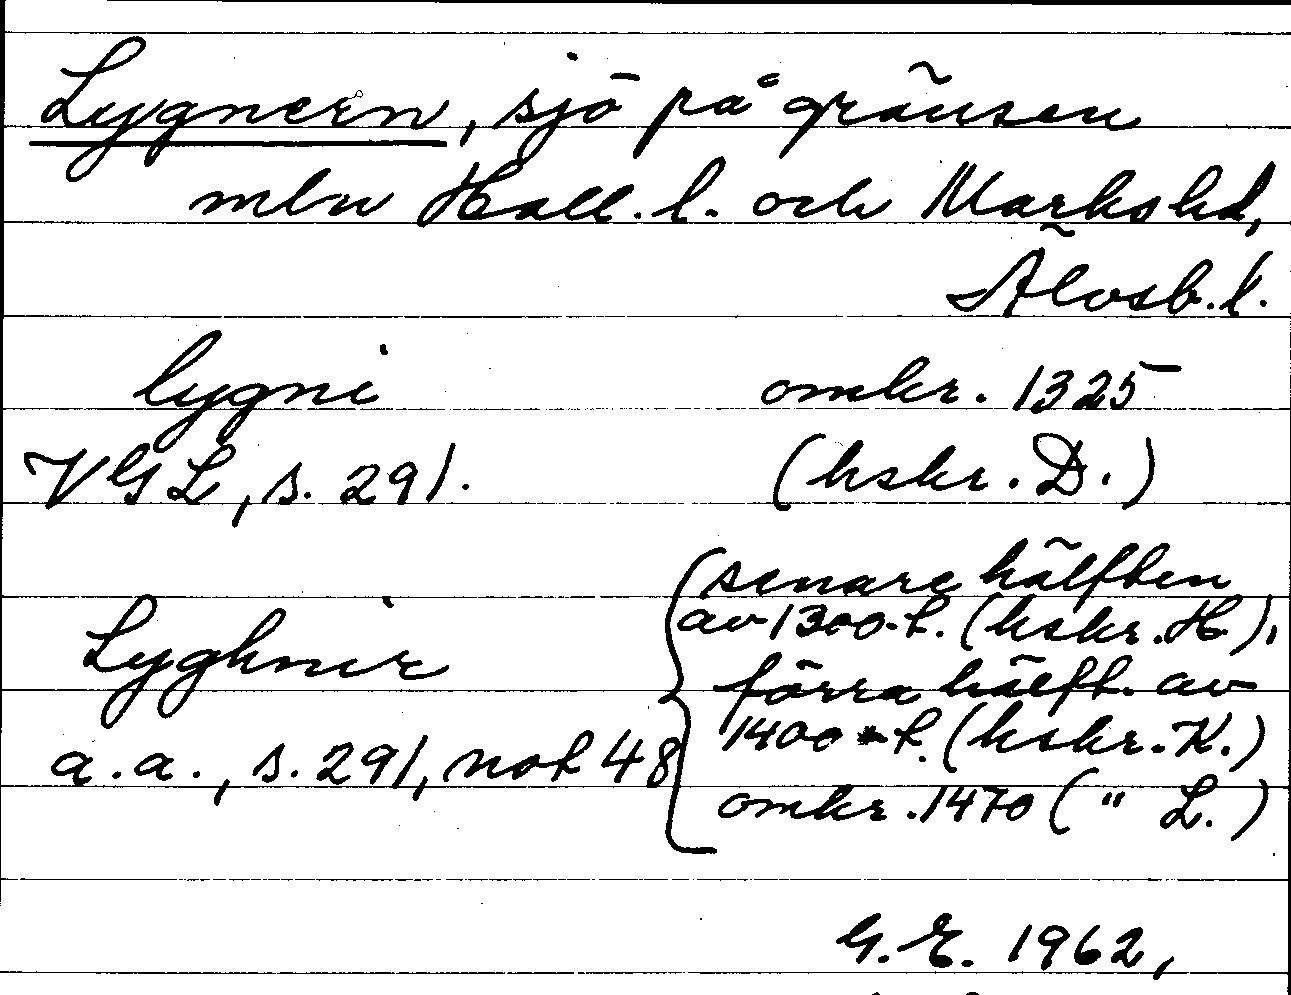 Lygnern, sjö på gränsen
mln Hall. l. och Marks hd,
Älvsb. l.
lygni omkr. 1325
VGL, s. 291. (hskr. D.)
Lyghnir
a.a., s. 291, not 48
senare hälften
av 1300-t. (hskr. H.),
förra hälft. av
1400-t. (hskr. K.)
omkr. 1470 ( " L.)
G. E. 1962,